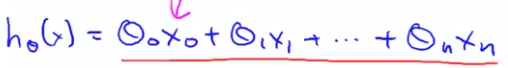 h_θ(x) = θ₀x₀ + θ₁x₁ + ⋯ + θₙxₙ